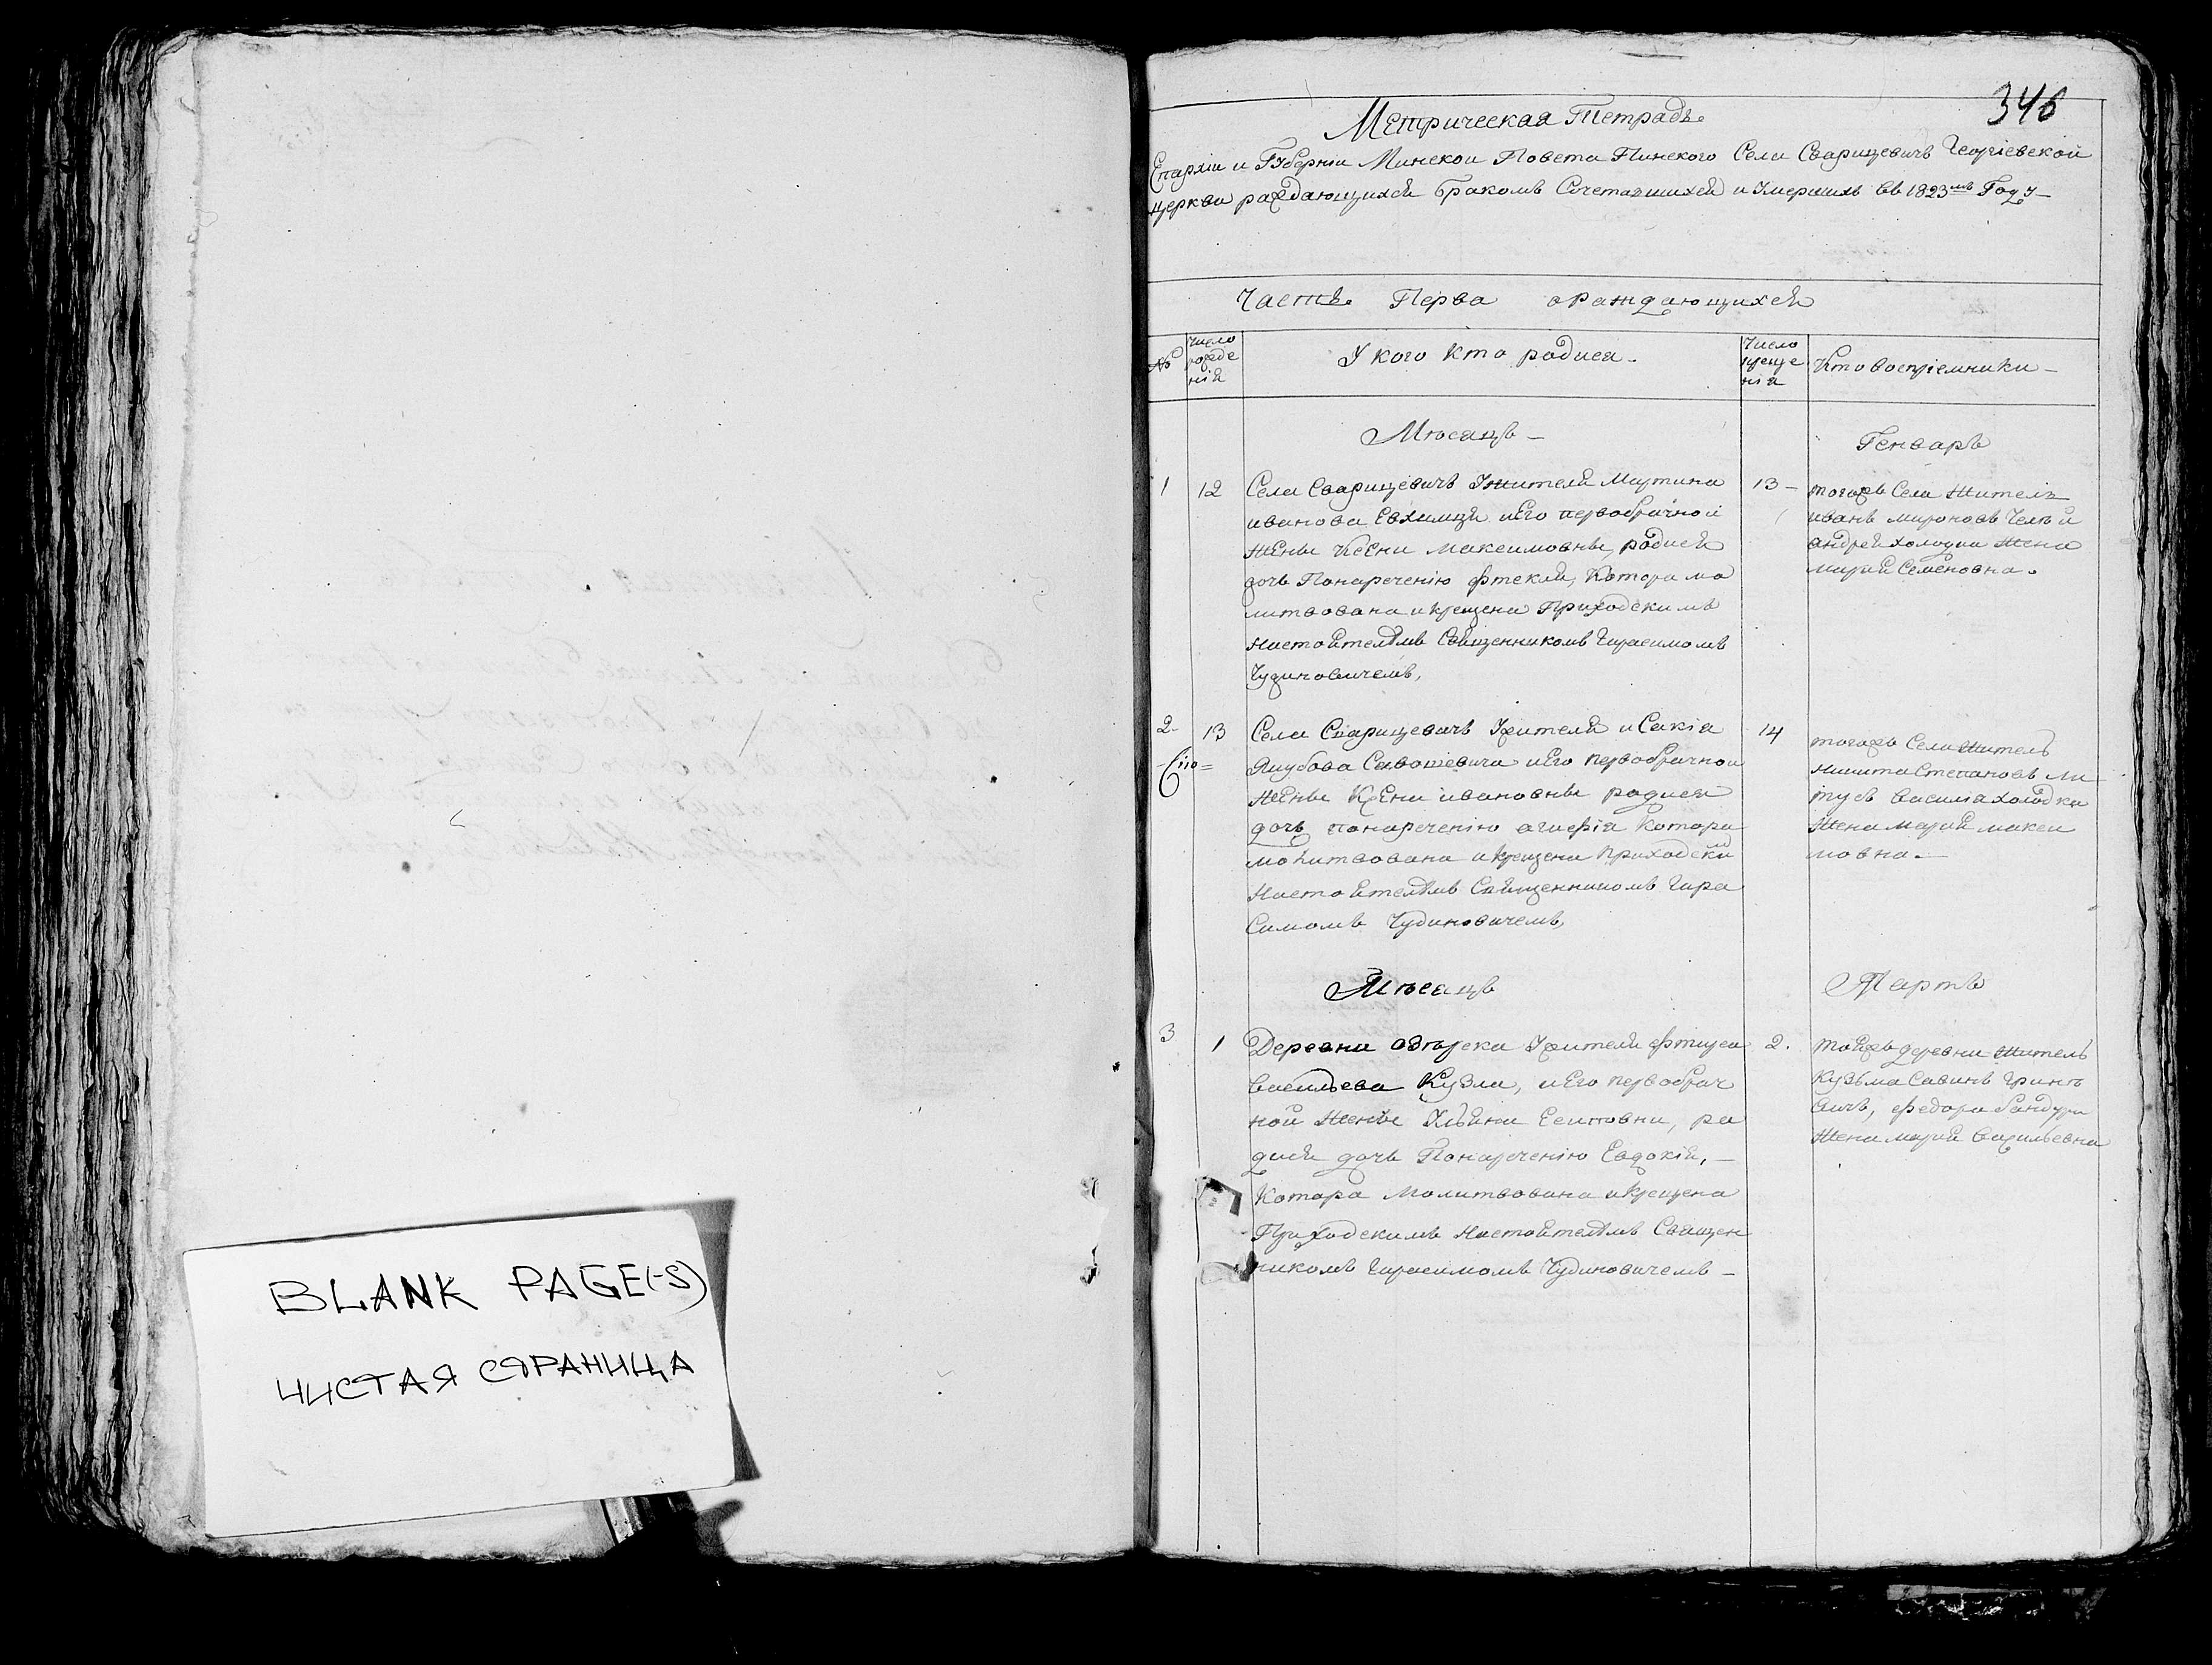 BLANK PAGE(-S)
ЧИСТАЯ СТРАНИЦА
346
Метрическая Тетрадь
Епархіи и Губерніи Минскои Повета Пинского Села Сварицевичъ Георгіевской
церкви раждающихся бракомъ Сочетавшихся и Умершихъ въ 1823мъ Году
Часть Перва о раждающихся
№ Число рожде нія У кого кто родися Число креще нія Кто воспріемники
Мѣсяцъ Генваръ
1 12 Села Сварицевичъ Жителя Мартина
Иванова Евхимця и Его первобрачной
Жены Ксени Максимовны родися
дочъ По наречению Фтекля, Котора мо
литвована и крещена Приходскимъ
Настоятелемъ Священникомъ Гарасимомъ
Чудиновичемъ,
13 тогожъ Села Житель
иванъ мироновъ
андрея холодка Жена
мария Семеновна.
2 13 Села Сварицевичъ Жителя исакія
Якубова Савошевича и Его первобрачной
Жены Ксени ивановны родися
дочъ по наречению агафія Котора
молитвована и крещена Приходскимъ
Настоятелемъ Священникомъ Гара
симомъ Чудиновичемъ,
14 тогожъ Села Житель
Никита Степановъ Ми
тусъ василія холодки
Жена мария макси
мовна.
Мѣсяцъ Мартъ
3 1 Деревни Жителя
васильева Кузла, и Его первобрач
ной Жены Ульяни Есиповни, ра
дися дочъ По наречению Евдокія,
Котора молитвована и крещена
Приходскимъ Настоятелемъ Священ
никомъ Гарасимомъ Чудиновичемъ
2. тояжъ деревни житель
Кузьма Савинъ Гринь
вичъ, федора бандури
Жена мария васильевна